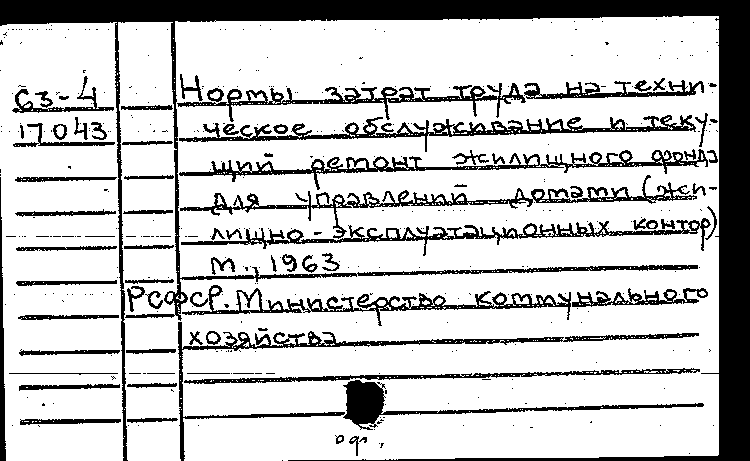 63-4 Нормы затрат труда на техни-
17043 ческое обслуживание и теку-
щий ремонт жилищного фонда
для управлений домами (жи-
лищно-эксплуатационных контор)
М., 1963
РСФСР. Министерство коммунального
хозяйства